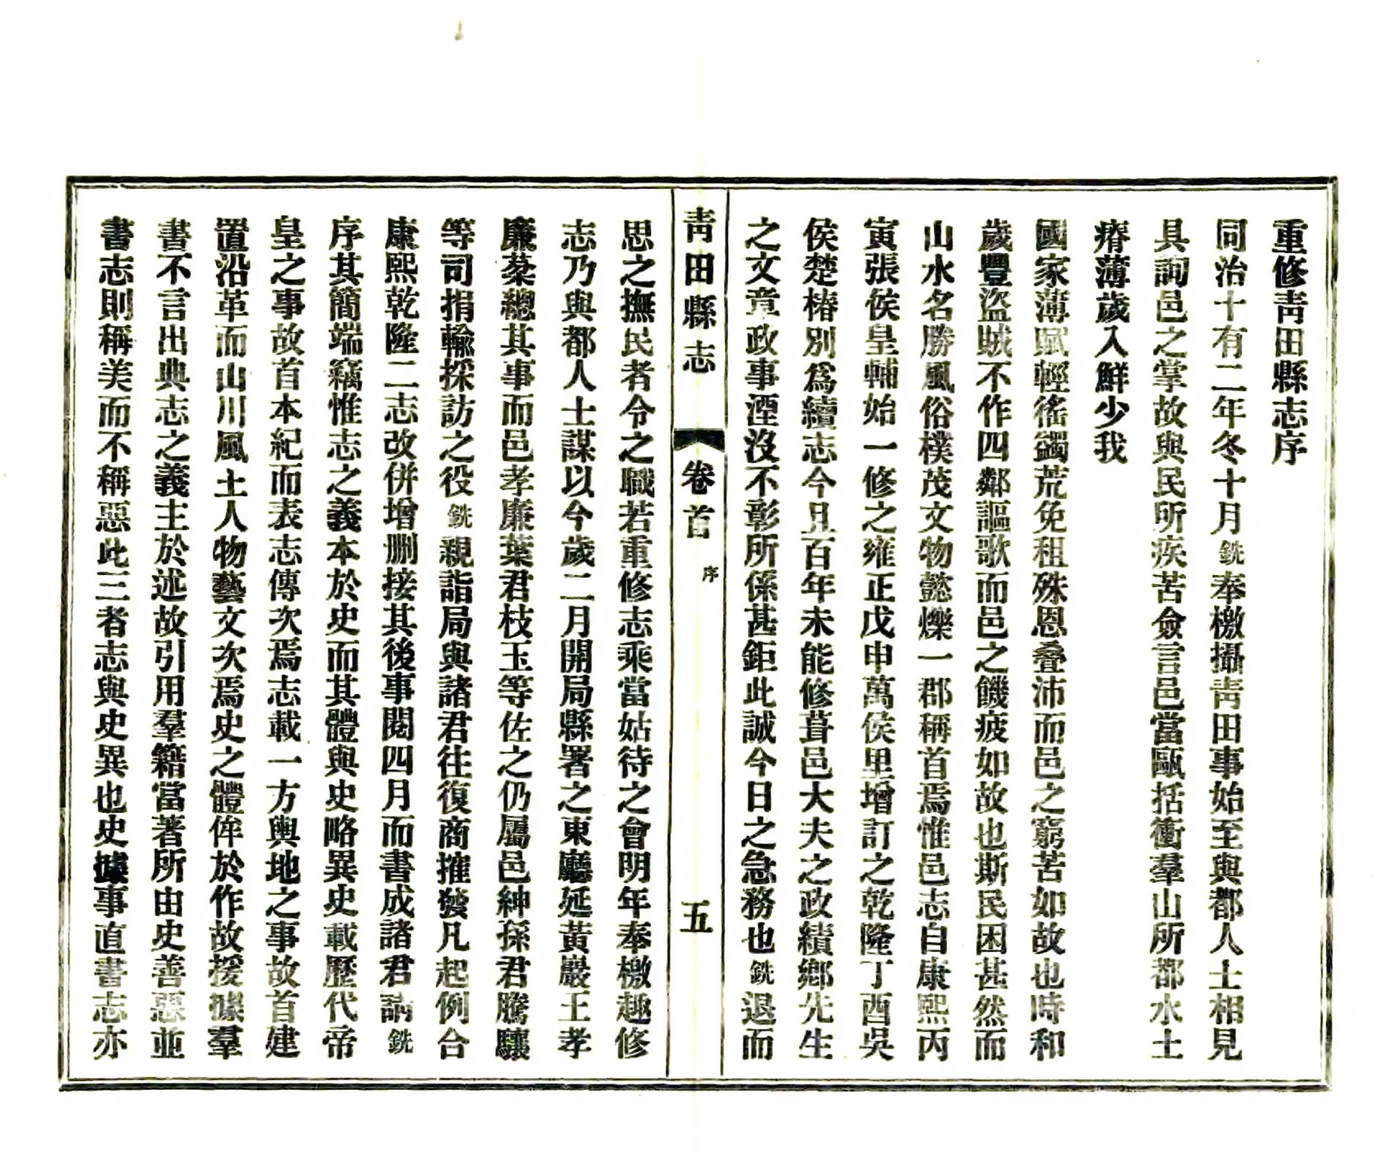 重修靑田縣志序
同治十有二年冬十月銑奉檄攝靑田事始至與都人士相見
具詢邑之掌故與民所疾苦僉言邑當甌括衝羣山所都水土
瘠薄歲入鮮少我
國家薄賦輕徭蠲荒免租殊恩叠沛而邑之窮苦如故也時和
歲豐盜賊不作四鄰謳歌而邑之饑疲如故也斯民困甚然而
山水名勝風俗樸茂文物懿爍一郡稱首焉惟邑志自康熙丙
寅張侯皇輔始一修之雍正戊申萬侯里增訂之乾隆丁酉吳
侯楚椿別爲續志今且百年未能修葺邑大夫之政績鄉先生
之文章政事湮沒不彰所係甚鉅此誠今日之急務也銑退而
靑田縣志 卷首 序 五
思之撫民者令之職若重修志乘當姑待之會明年奉檄趣修
志乃與都人士謀以今歲二月開局縣署之東廳延黃巖王孝
廉棻總其事而邑孝廉葉君枝玉等佐之仍屬邑紳孫君騰驤
等司捐輸採訪之役銑親詣局與諸君往復商搉發凡起例合
康熙乾隆二志改併增删接其後事閱四月而書成諸君請銑
序其簡端竊惟志之義本於史而其體與史略異史載歷代帝
皇之事故首本紀而表志傳次焉志載一方輿地之事故首建
置沿革而山川風土人物藝文次焉史之體侔於作故援據羣
書不言出典志之義主於述故引用羣籍當著所由史善惡並
書志則稱美而不稱惡此三者志與史異也史據事直書志亦